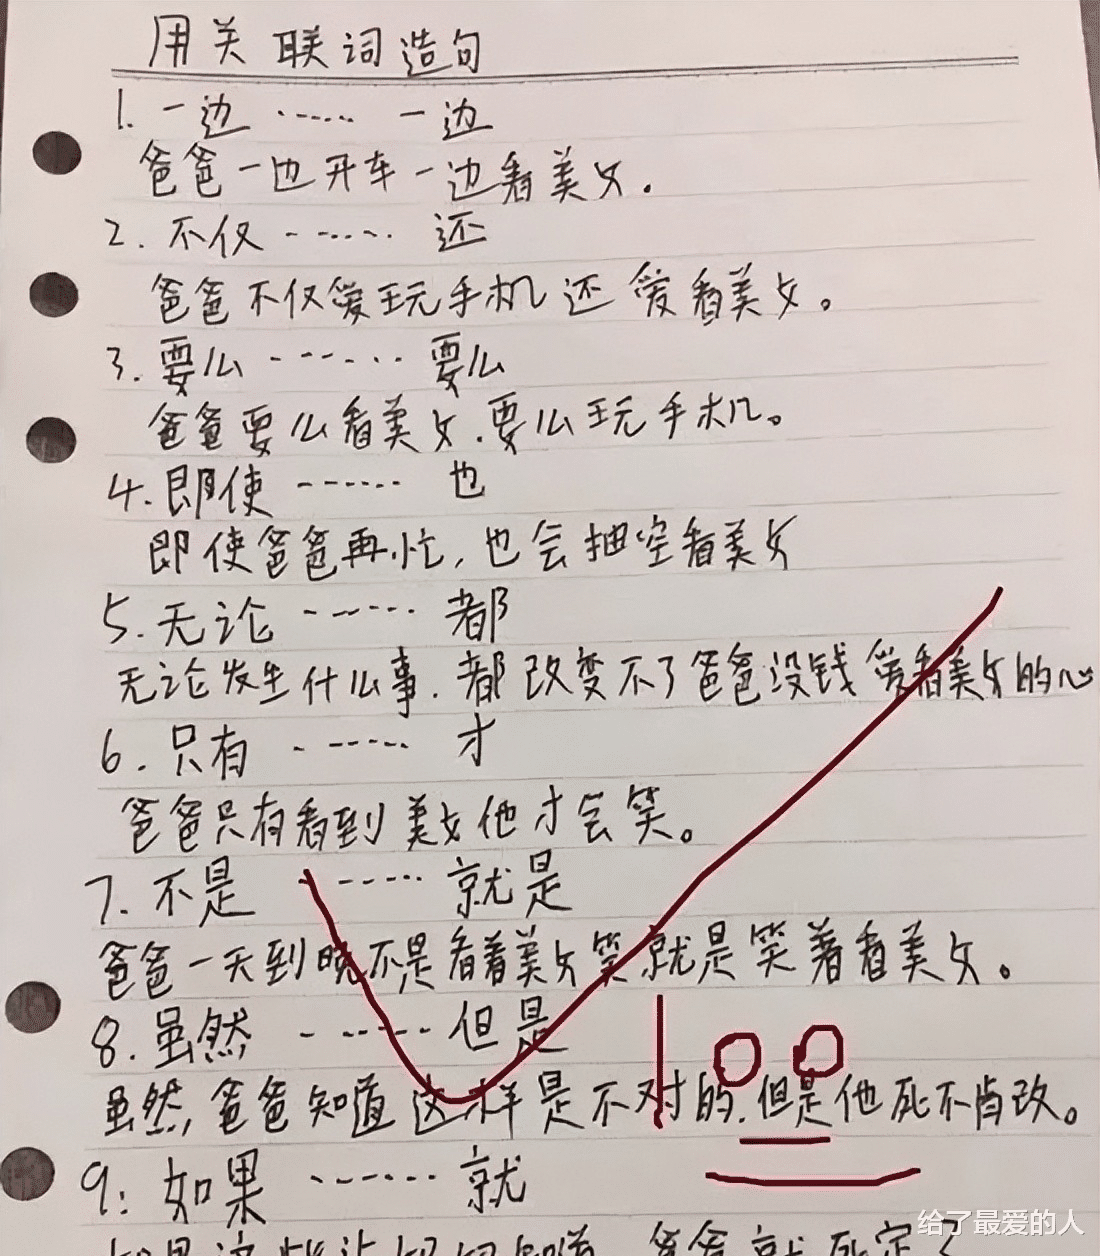 用关联词造句
1. 一边 ...... 一边
爸爸一边开车一边看美女.
2. 不仅 ...... 还
爸爸不仅爱玩手机还爱看美女。
3. 要么 ...... 要么
爸爸要么看美女.要么玩手机。
4. 即使 ...... 也
即使爸爸再忙,也会抽空看美女
5. 无论 ...... 都
无论发生什么事.都改变不了爸爸没钱爱看美女的心
6. 只有 ...... 才
爸爸只有看到美女他才会笑。
7. 不是 ...... 就是
爸爸一天到晚不是看着美女笑就是笑着看美女。
8. 虽然 ...... 但是
100
虽然,爸爸知道这样是不对的.但是他死不肯改。
9: 如果 ...... 就
如果这些让妈妈知道 爸爸就死定了
给了最爱的人